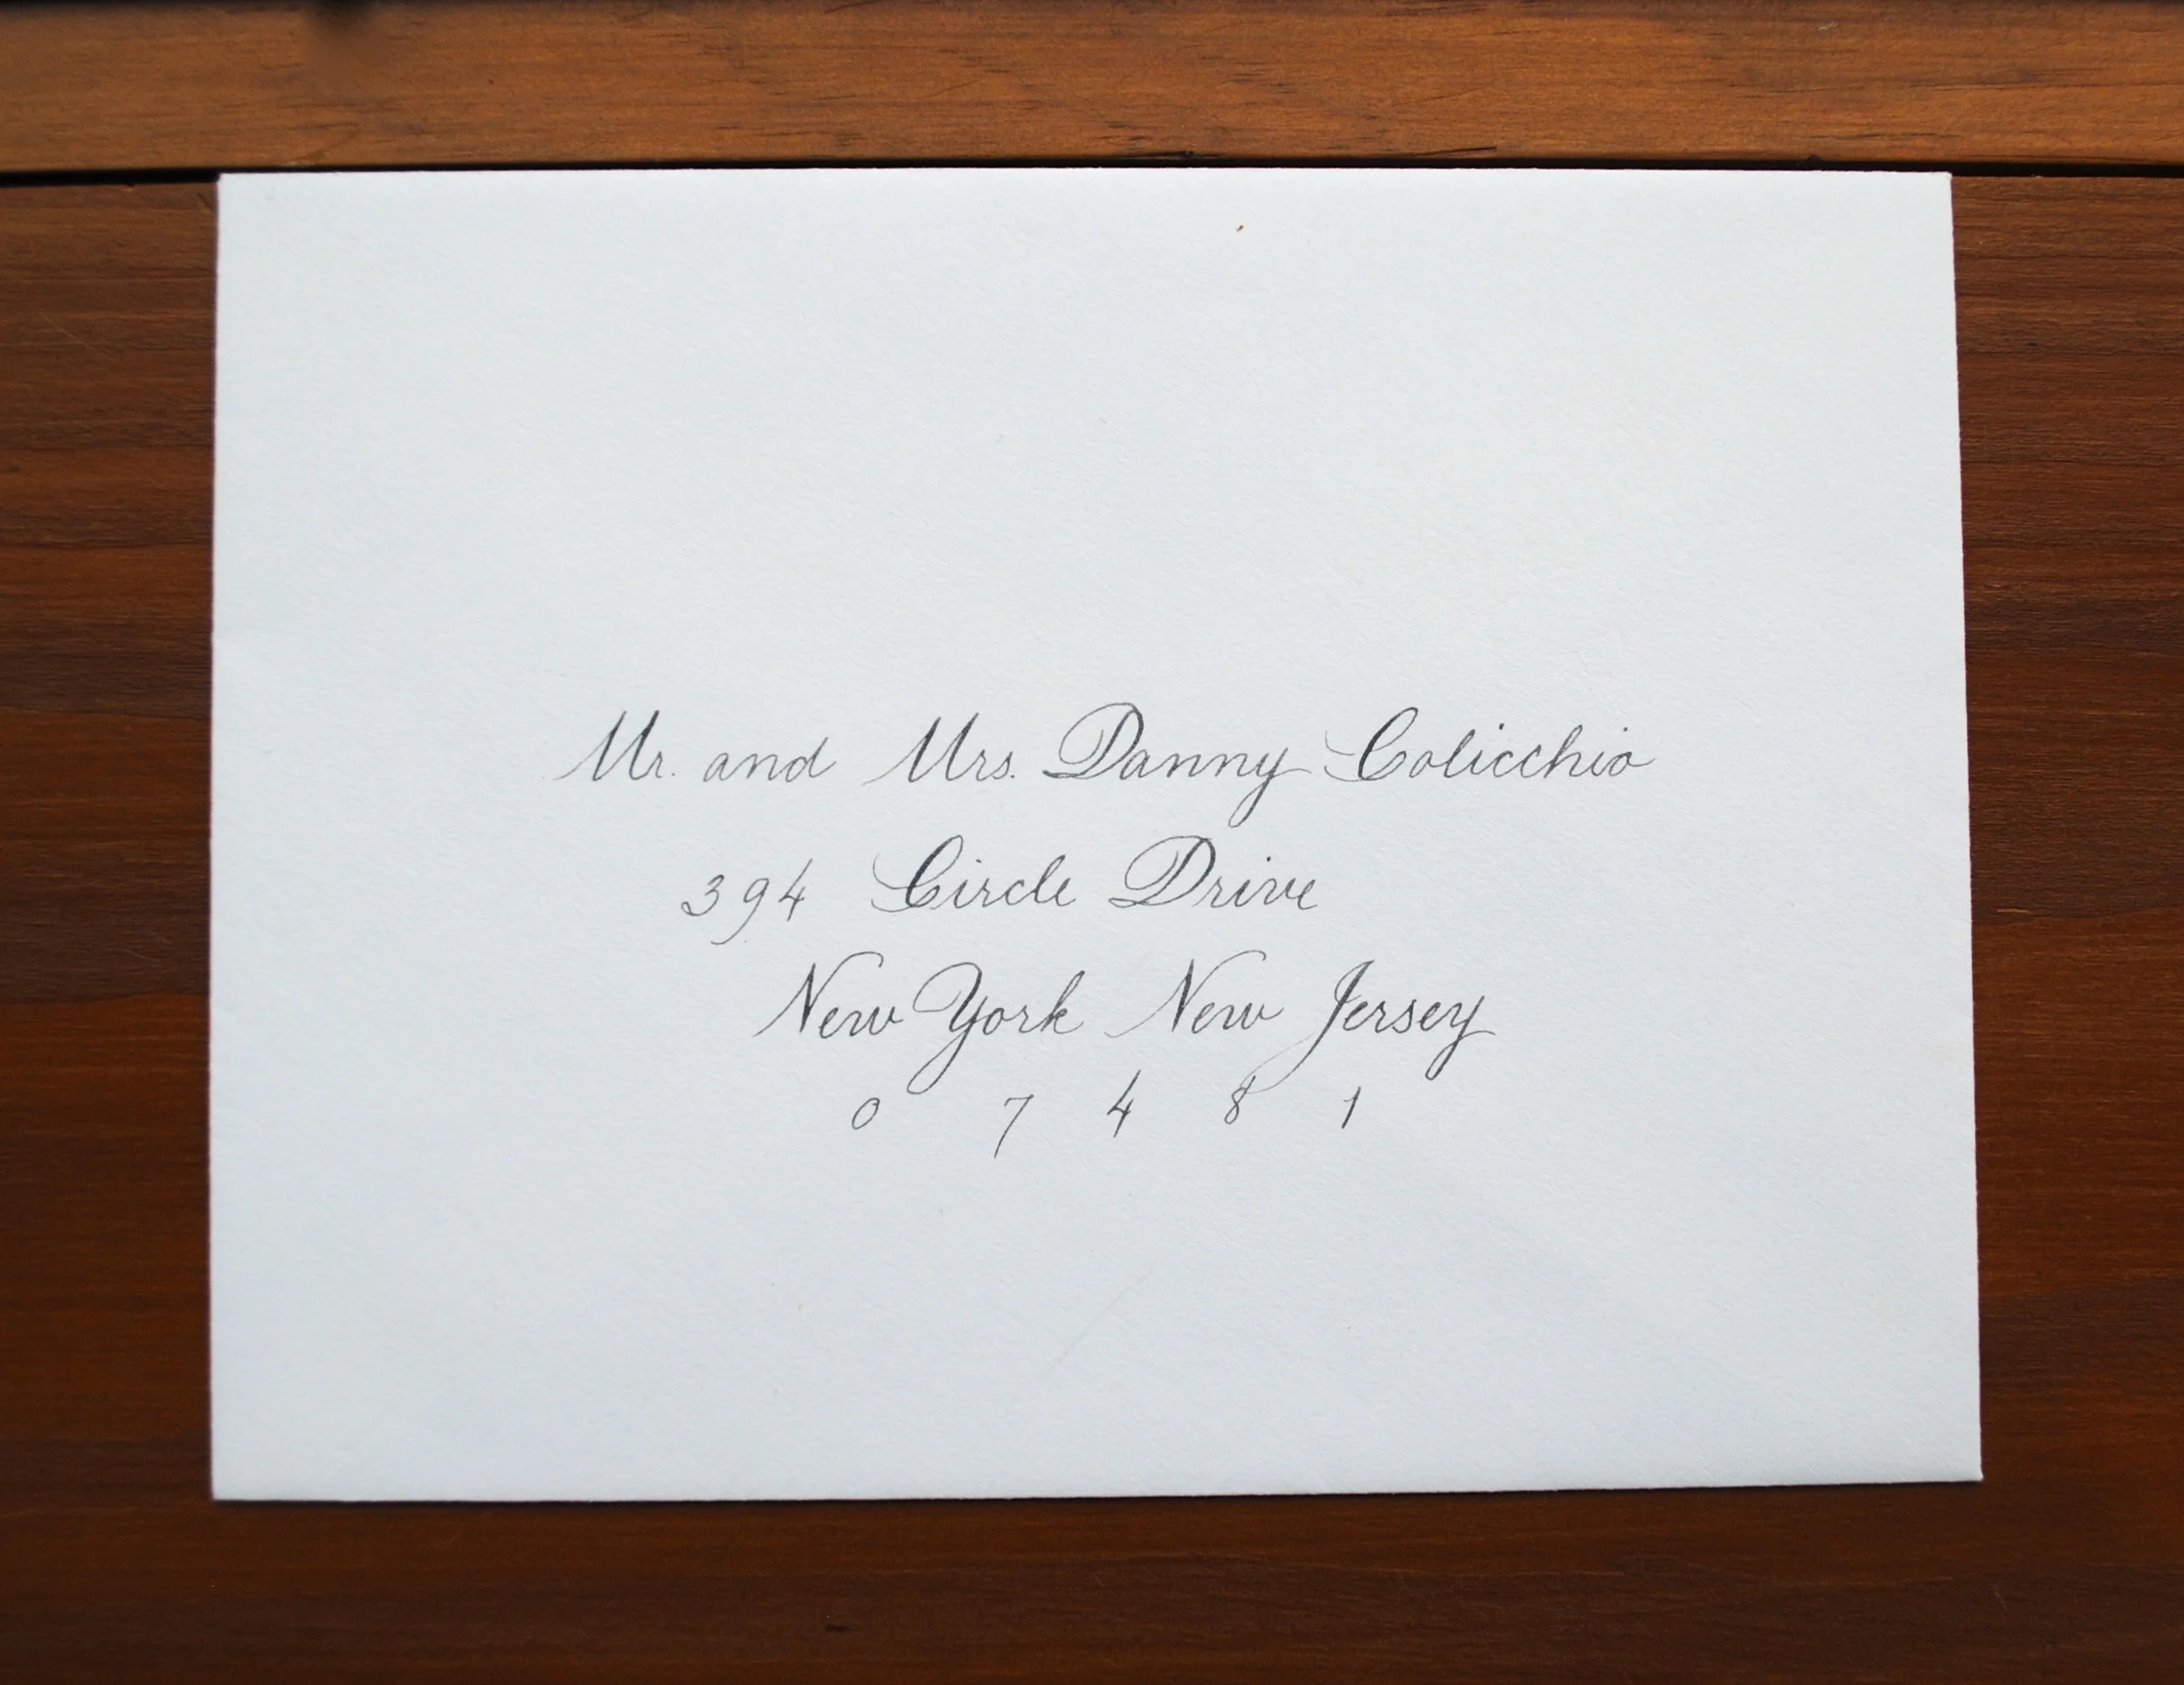 Mr. and Mrs. Danny Colicchio
394 Circle Drive
New York New Jersey
0 7 4 8 1